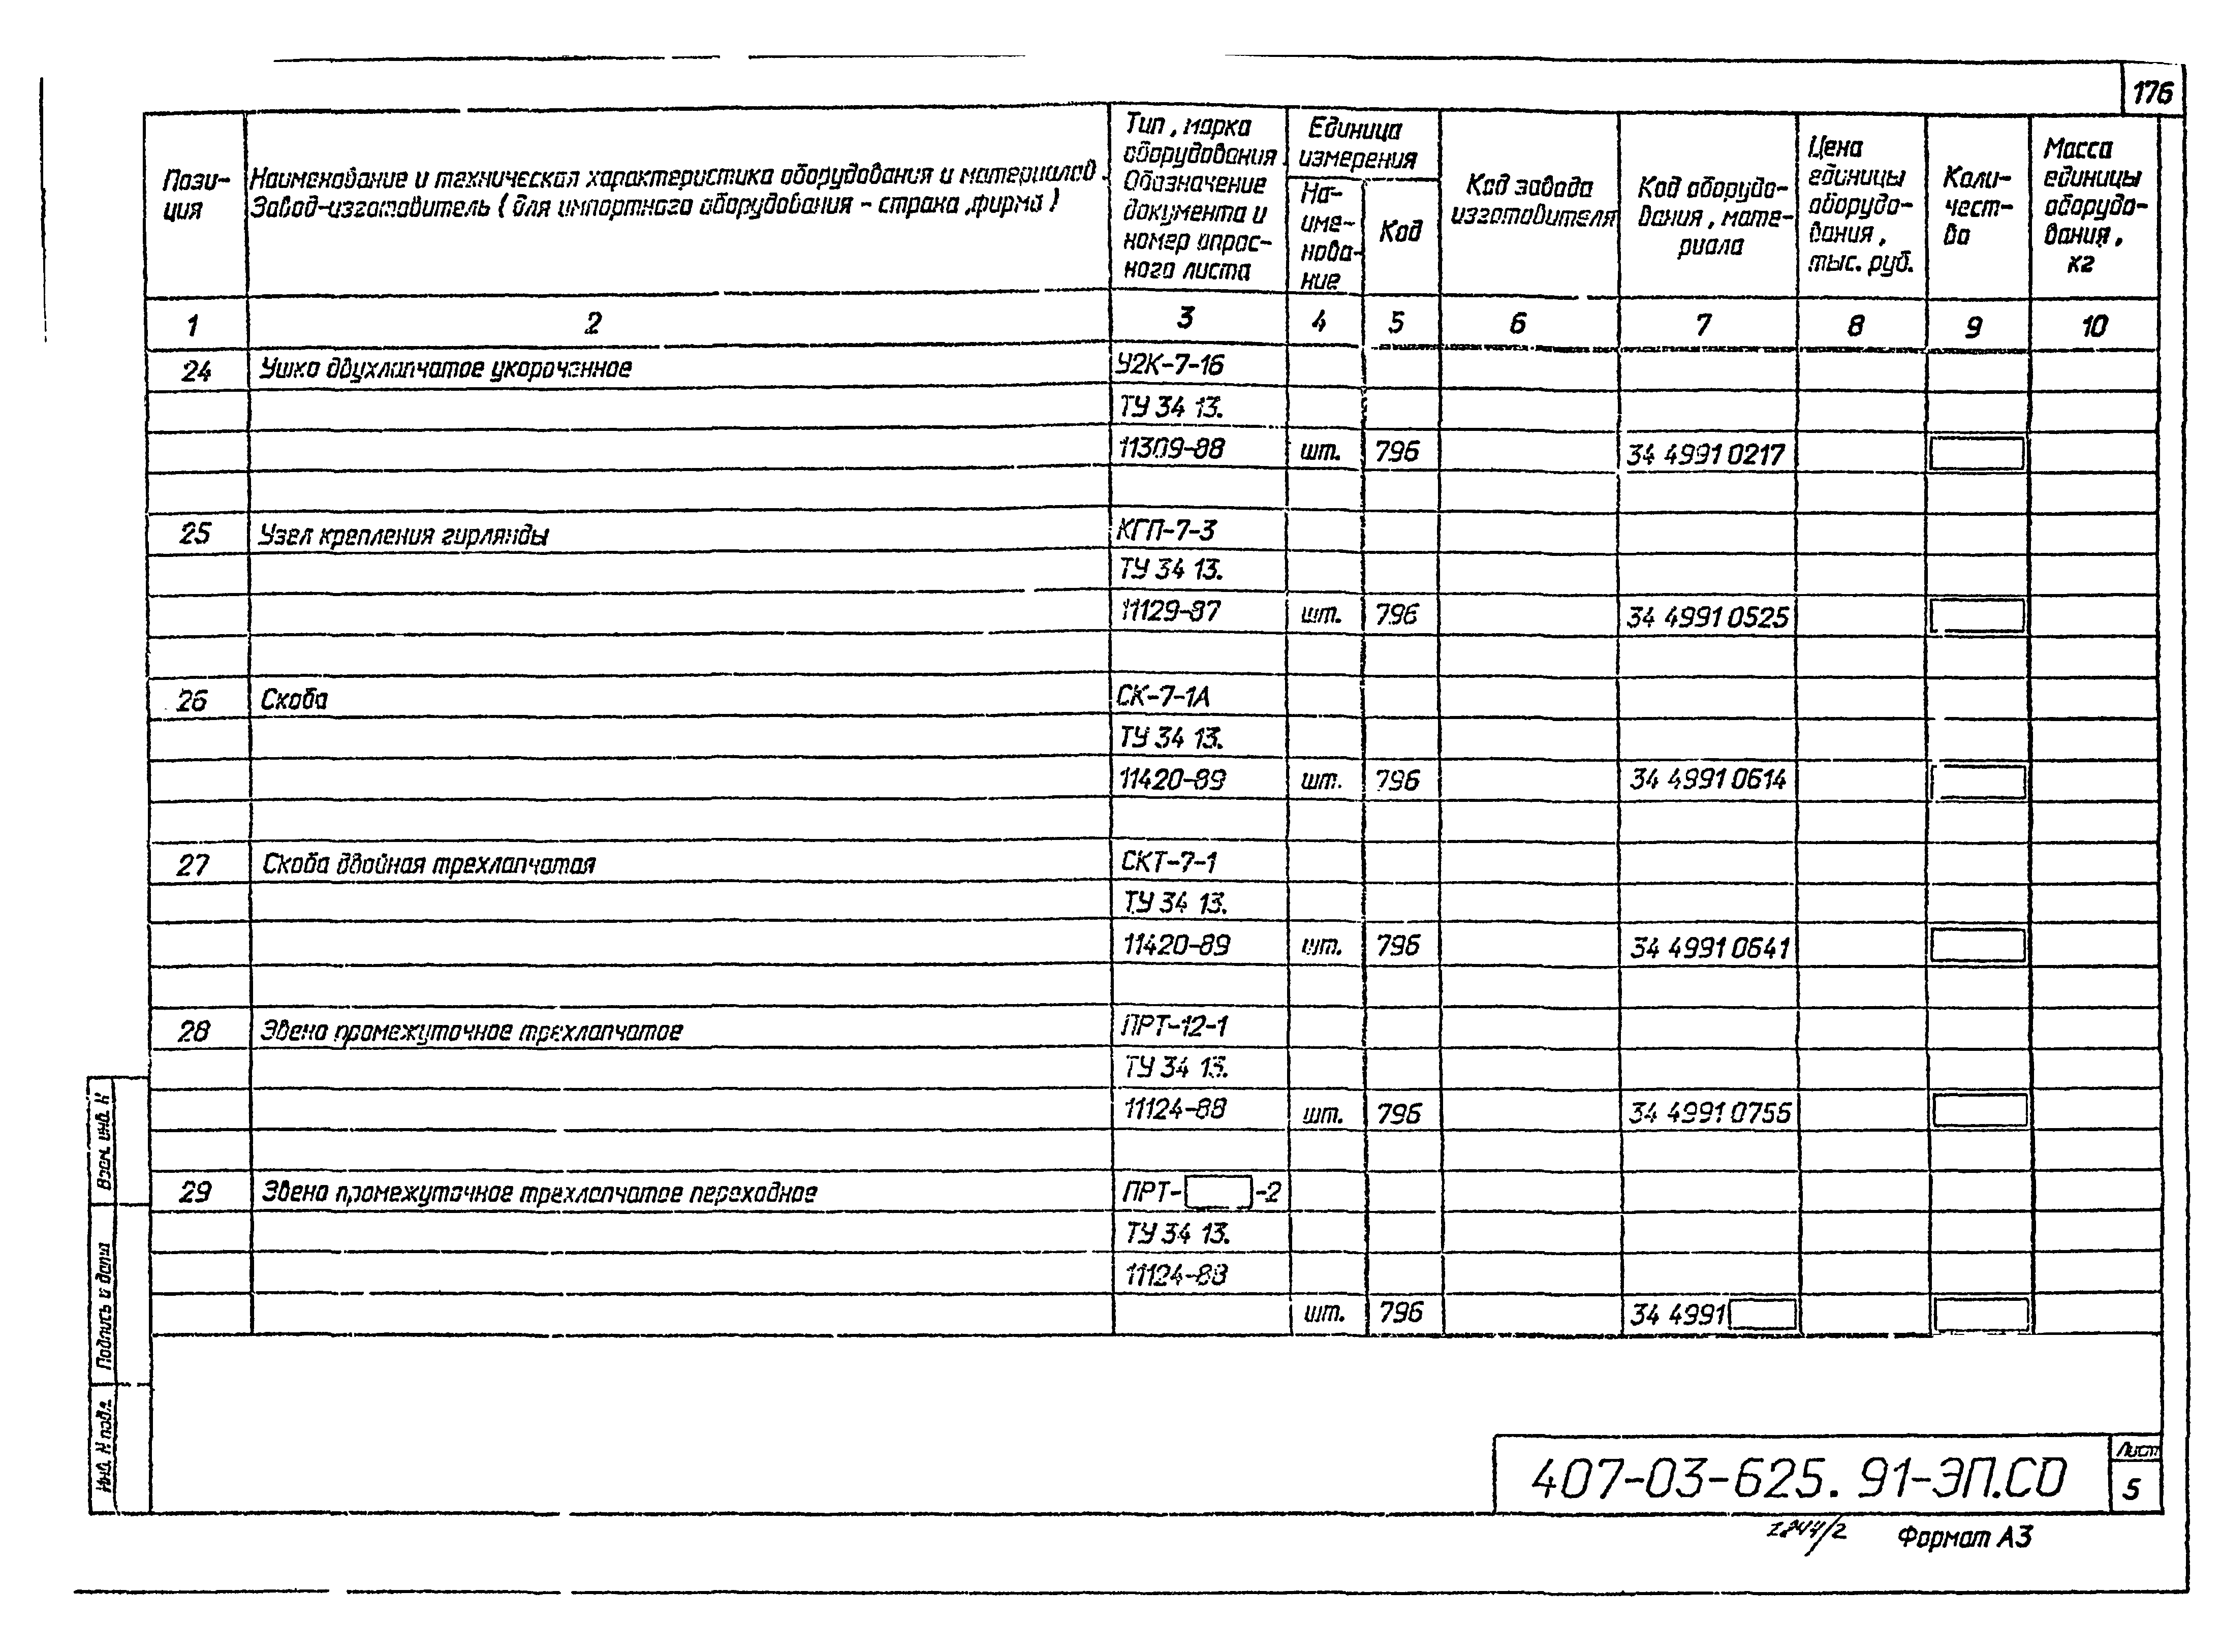 176
Пози-
ция
Наименование и техническая характеристика оборудования и материалов.
Завод-изготовитель (для импортного оборудования - страна, фирма)
Тип, марка
оборудования.
Обозначение
документа и
номер опрос-
ного листа
Единица
измерения
На-
име-
нова-
ние
Код
Код завода
изготовителя
Код оборудо-
вания, мате-
риала
Цена
единицы
оборудо-
вания,
тыс. руб.
Коли-
чест-
во
Масса
единицы
оборудо-
вания,
кг
1 2 3 4 5 6 7 8 9 10
24 Ушко двухлапчатое укороченное У2К-7-16
ТУ 34 13.
11309-88 шт. 796 34 4991 0217
25 Узел крепления гирлянды КГП-7-3
ТУ 34 13.
11129-87 шт. 796 34 4991 0525
26 Скоба СК-7-1А
ТУ 34 13.
11420-89 шт. 796 34 4991 0614
27 Скоба двойная трехлапчатая СКТ-7-1
ТУ 34 13.
11420-89 шт. 796 34 4991 0641
28 Звено промежуточное трехлапчатое ПРТ-12-1
ТУ 34 13.
11124-88 шт. 796 34 4991 0756
29 Звено промежуточное трехлапчатое переходное ПРТ- -2
ТУ 34 13.
11124-88
шт. 796 34 4991
Взам. инв. N
Подпись и дата
Инв. N подл.
407-03-625. 91-ЭП.СО
Лист
5
Формат А3